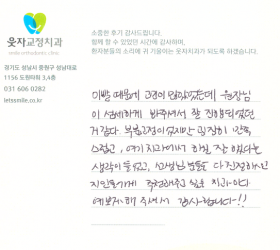 웃자교정치과
smile orthodontic clinic
경기도 성남시 중원구 성남대로
1156 도원타워 3,4층
031 606 0282
letssmile.co.kr
소중한 후기 감사드립니다.
함께 할 수 있었던 시간에 감사하며,
환자분들의 소리에 귀 기울이는 웃자치과가 되도록 하겠습니다.
이빨 때문에 고민이 많았었는데 원장님
이 섬세하게 봐주셔서 잘 진행되었던
거 같다.
스럽고, 여기 치과에서 하길 잘 했다는
생각이 들었고, 선생님 분들도 다 친절하시고
지인들에게 추천해주고 싶은 치과이다
예쁘게 해 주셔서 감사합니다~!!